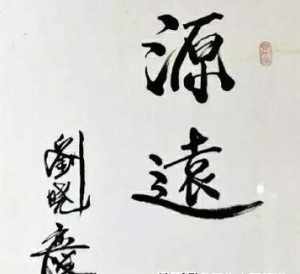 源遠
劉曉慶